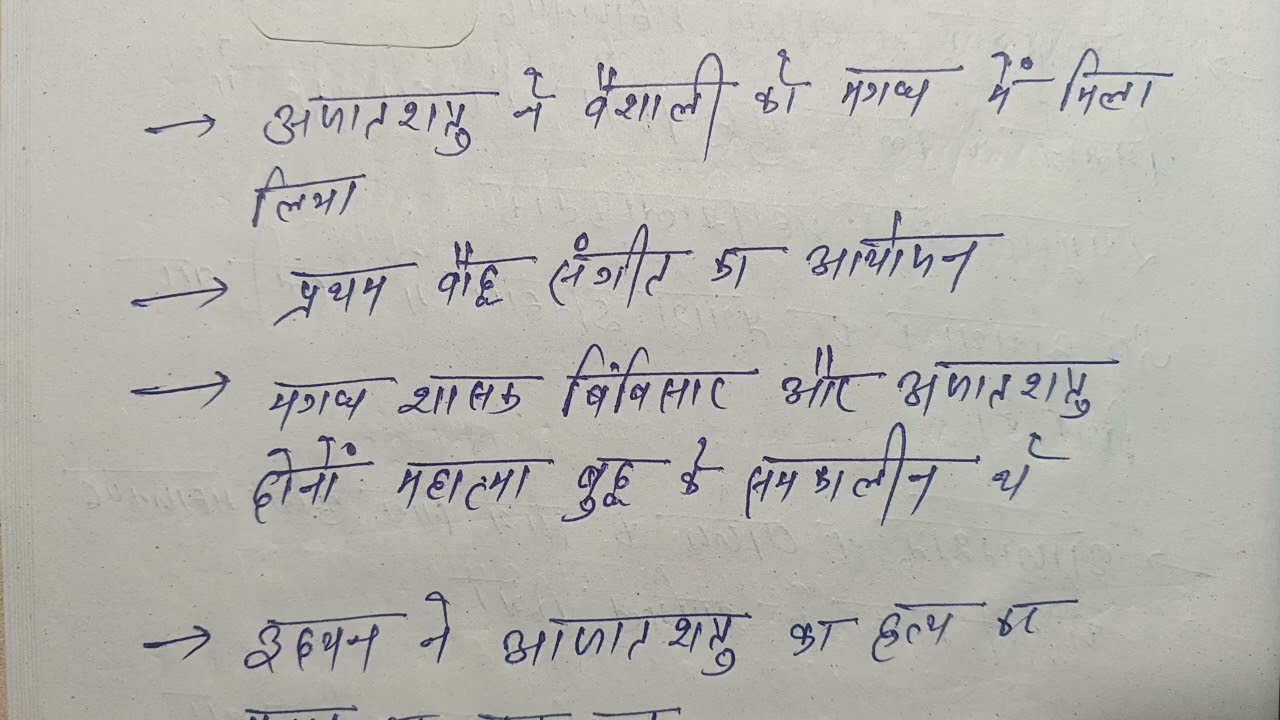 → अजातशत्रु ने वैशाली को मगध में मिला
लिया
→ प्रथम बौद्ध संगीत का आयोजन
→ मगध शासक बिंबिसार और अजातशत्रु
दोनों महात्मा बुद्ध के समकालीन थे
→ उदयन ने आजातशत्रु का हत्य कर